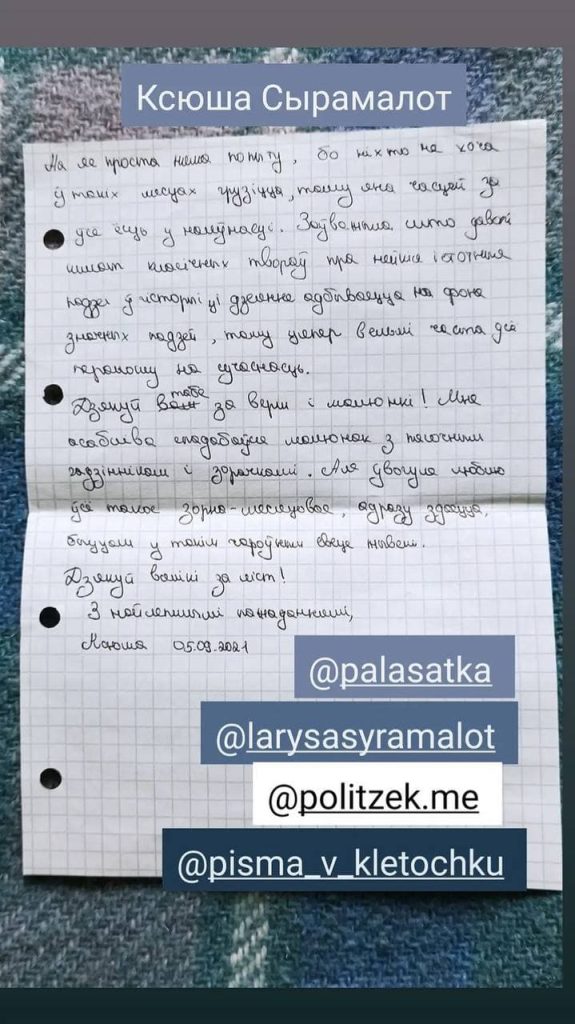 Ксюша Сырамалот
На яе проста няма попыту, бо ніхто не хоча
ў такіх месцах грузіцца, таму яна часцей за
ўсё ёсць у наяўнасці. Заўважыла што даволі
шмат класічных твораў пра нейкія істотныя
падзеі ў гісторыі ці дзеянне адбываецца на фоне
значных падзей, таму цяпер вельмі часта ўсё
пераношу на сучаснасць.
Дзякуй вам табе за вершы і малюнкі! Мне
асабліва спадабаўся малюнак з пясочным
гадзіннікам і зорачкамі. Аля ўвогуле люблю
ўсё такое зорна-месяцовае, адразу здаецца,
быццам у такім чароўным свеце жывеш.
Дзякуй вялікі за ліст!
З найлепшымі пажаданнямі,
Ксюша 05.09.2021
@palasatka
@larysasyramalot
@politzek.me
@pisma_v_kletochku